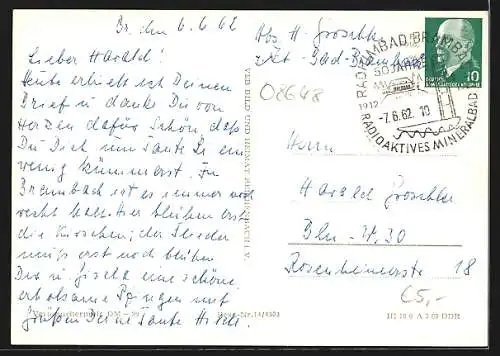 Br. den 6.6.62
Lieber Harald!
Heute erhielt ich Deinen
Brief u. danke Dir von
Herzen dafür. Schön, daß
Du Dich um Tante
wenig kümmerst. In
Brambach ist es immer noch
recht kalt. Hier blühen erst
die Kirschen; der Flieder
muß erst noch blühen
Dir u. Gisela eine schöne
erholsame Pfingsten mit
Grüßen Deine Tante Hilde.
VEB BILD UND HEIMAT REICHENBACH I. V.
08648
Abs. H. Groschke
Bad Brambach
RADIUMBAD BRAMBACH
50 JAHRE
1912
-7.6.62. 10
RADIOAKTIVES MINERALBAD
10
Herrn
Harald Groschke
Bln.-W.30
Rosenheimerstr. 18
€5,-
Best.-Nr. 14/4303
III 18 6 A 2 09 DDR